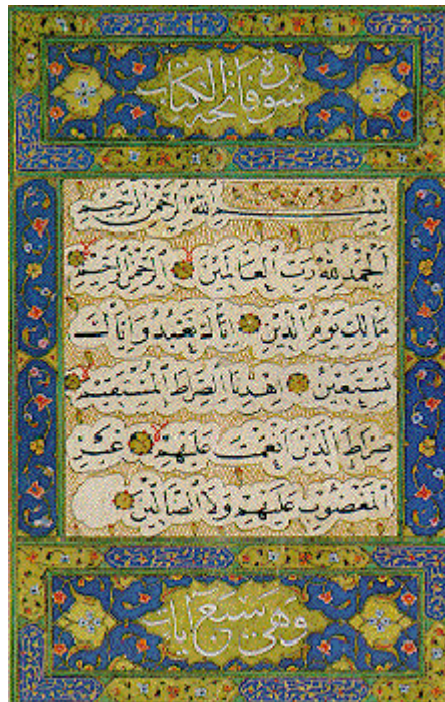 سورة فاتحة الكتاب
بسم الله الرحمن الرحيم
الحمد لله رب العالمين الرحمن الرحيم
مالك يوم الدين اياك نعبد واياك
نستعين اهدنا الصراط المستقيم
صراط الذين انعمت عليهم غير
المغضوب عليهم ولا الضالين
وهي سبع آيات